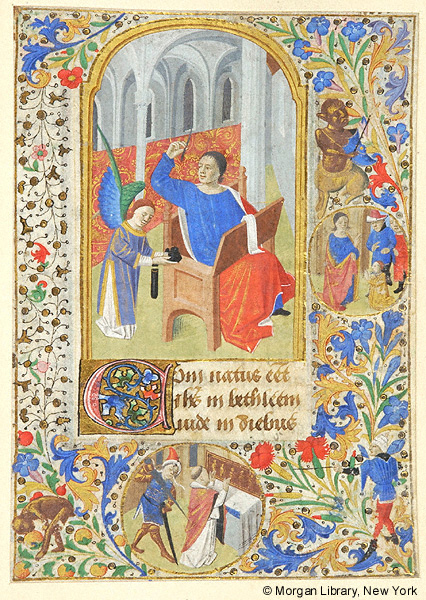 Cum natus est
ihs in bethleem
iude in diebus
© Morgan Library, New York